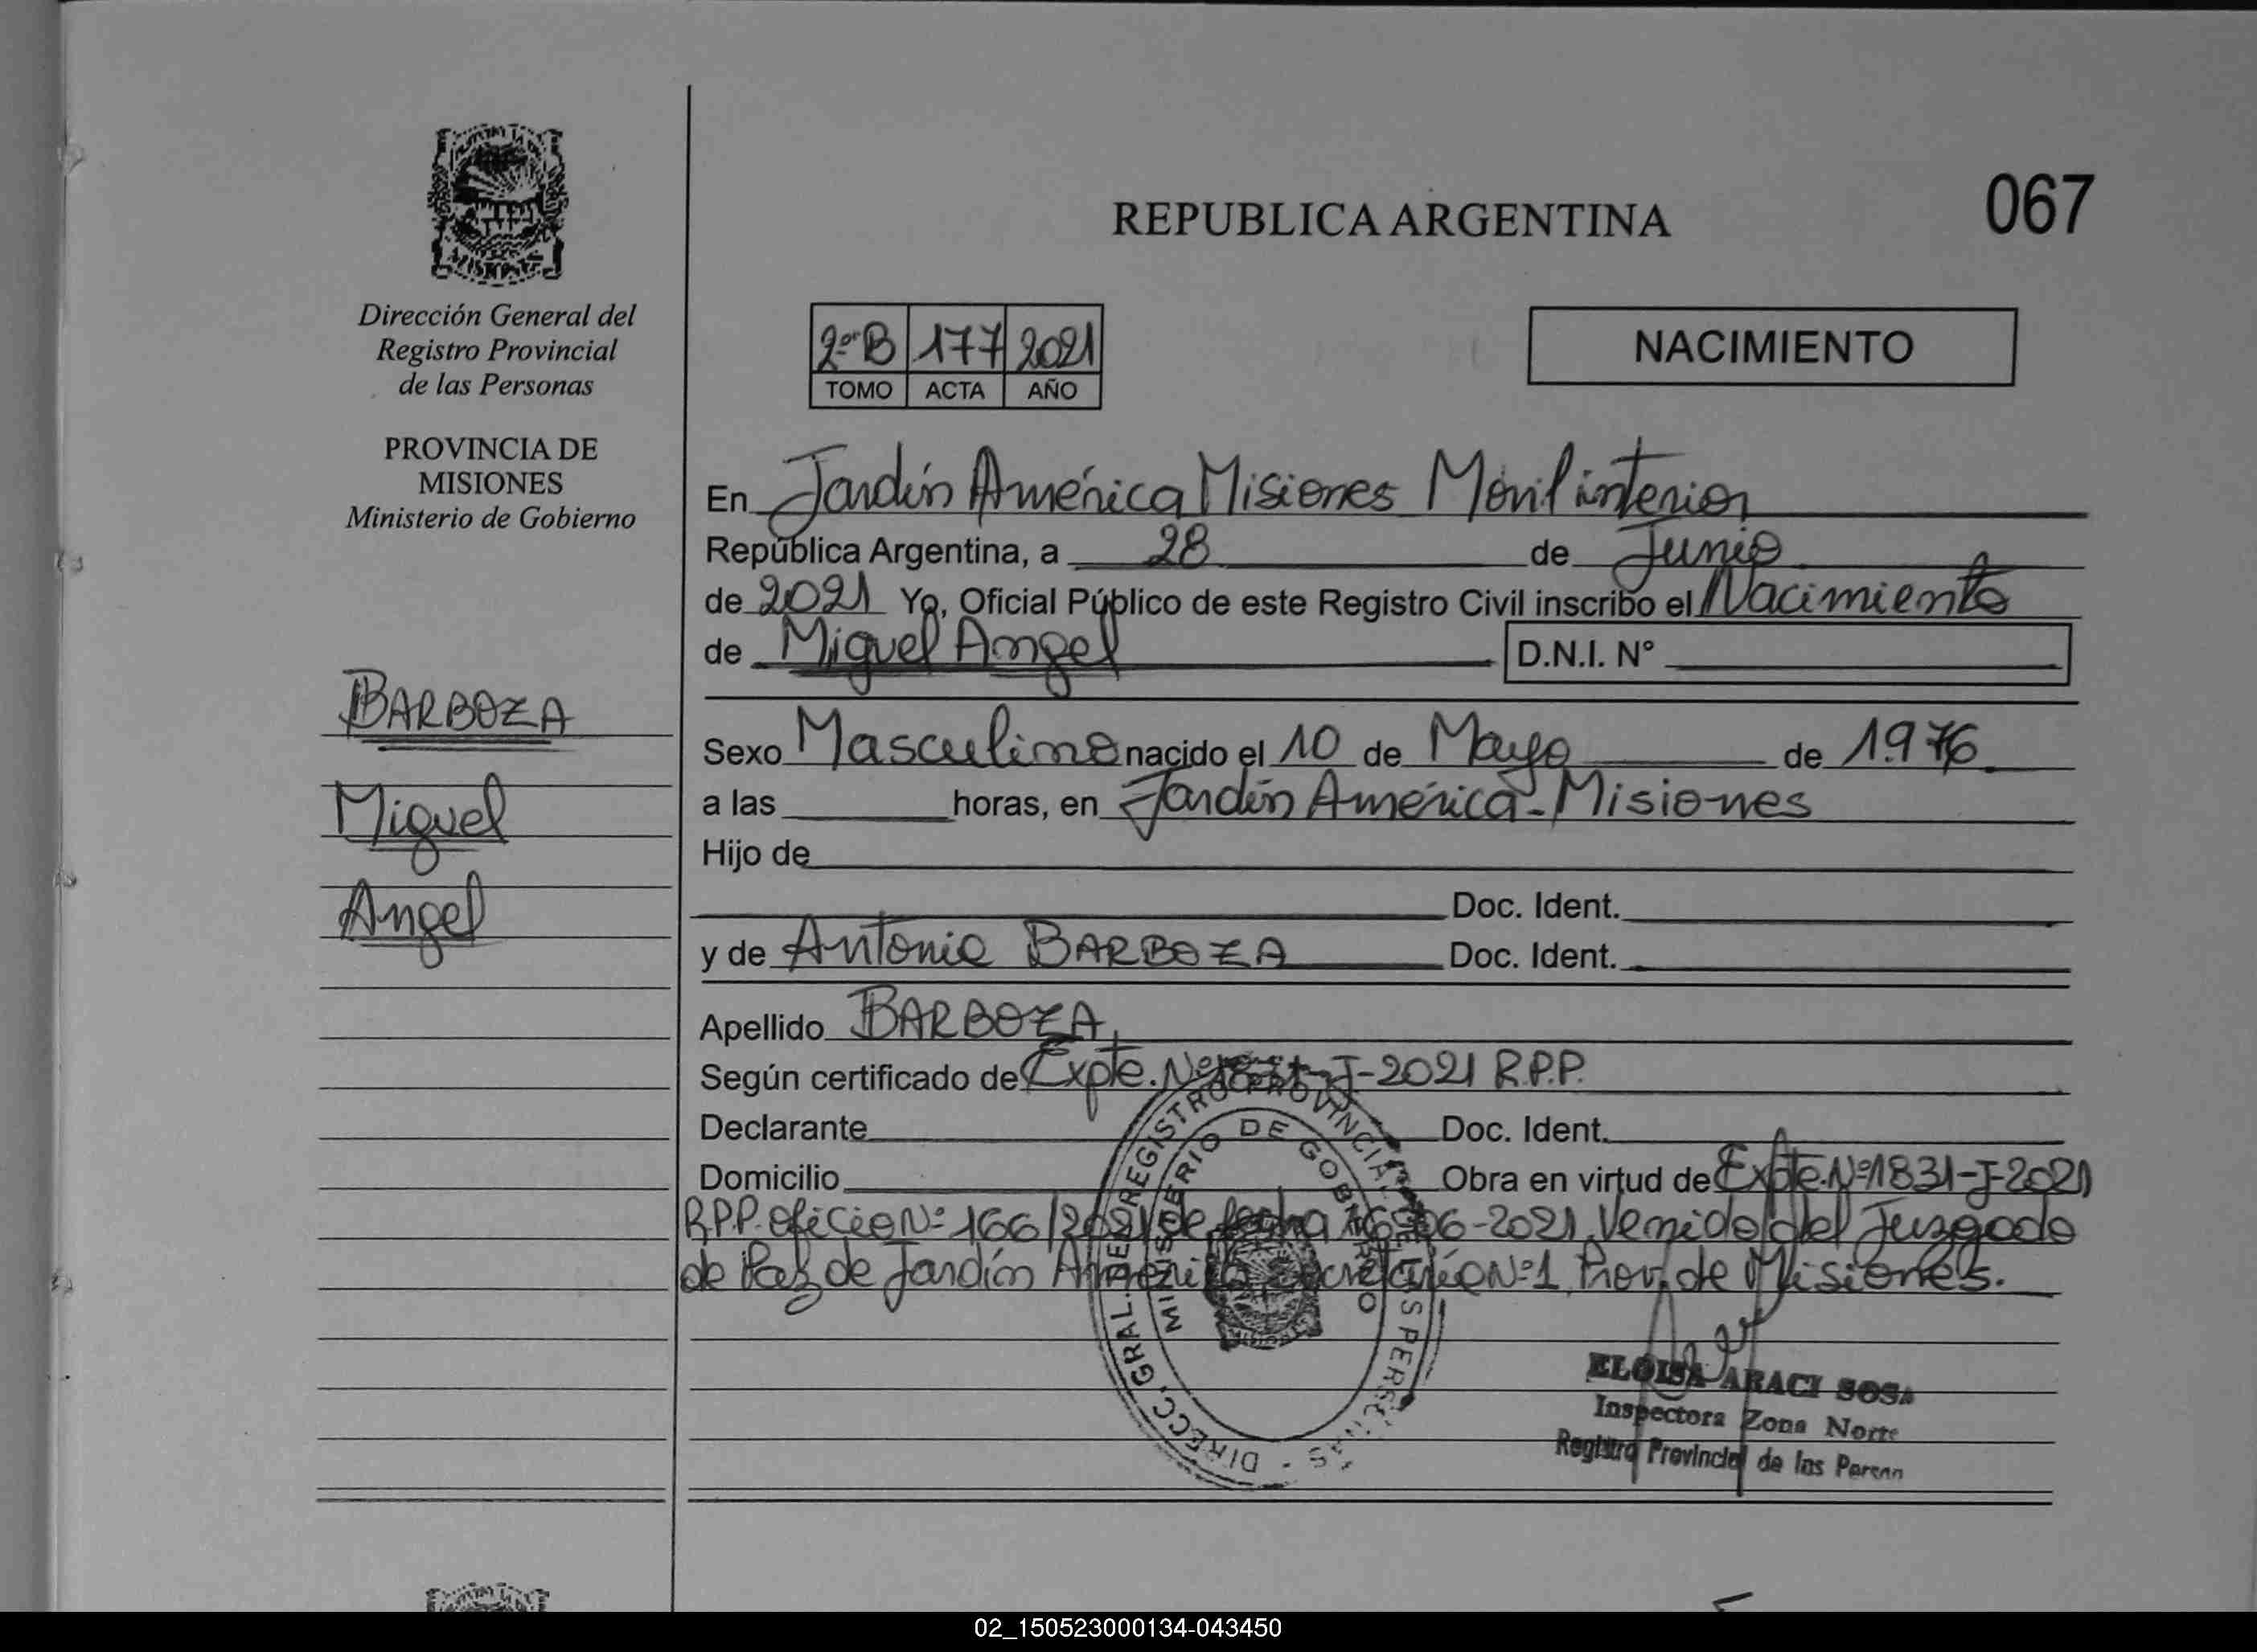 Dirección General del
Registro Provincial
de las Personas
PROVINCIA DE
MISIONES
Ministerio de Gobierno
BARBOZA
Miguel
Angel
REPUBLICA ARGENTINA
067
2º B 177 2021
TOMO ACTA AÑO
NACIMIENTO
En Jardín América Misiones Móvil interior
República Argentina, a 28 de Junio
de 2021 Yo, Oficial Público de este Registro Civil inscribo el Nacimiento
de Miguel Angel D.N.I. Nº
Sexo Masculino nacido el 10 de Mayo de 1.976
a las horas, en Jardín América - Misiones
Hijo de
Doc. Ident.
y de Antonia BARBOZA Doc. Ident.
Apellido BARBOZA
Según certificado de Expte. Nº 1831-J-2021 R.P.P.
Declarante Doc. Ident.
Domicilio Obra en virtud de Expte. Nº 1831-J-2021
R.P.P. oficio Nº 166/2021 de fecha 16-06-2021, Venido del Juzgado
de Paz de Jardín América Secretaría Nº 1, Prov. de Misiones.
DIRECC. GRAL. DE REGISTRO PROVINCIAL DE LAS PERSONAS
MINISTERIO DE GOBIERNO
ELOISA ARACI SOSA
Inspectora Zona Norte
Registro Provincial de las Person
02_150523000134-043450